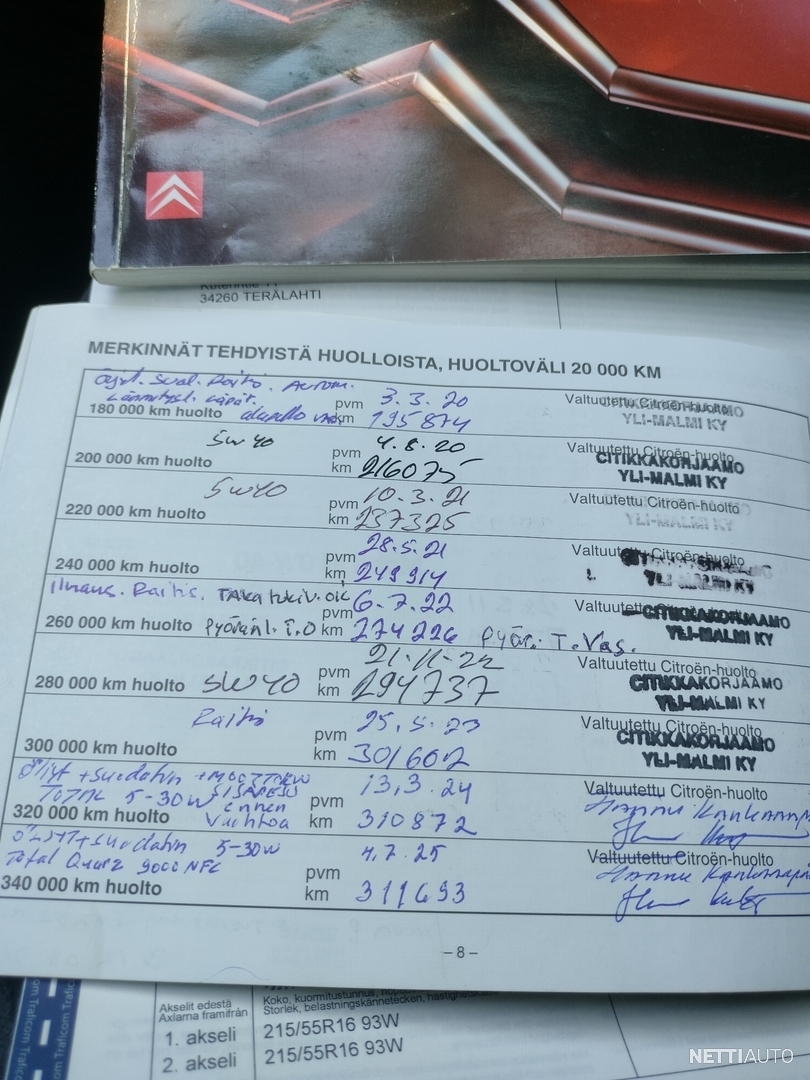 34260 TERÄLAHTI
MERKINNÄT TEHDYISTÄ HUOLLOISTA, HUOLTOVÄLI 20 000 KM
pvm 3.3.20 Valtuutettu Citroën-huolto
180 000 km huolto km 195874 YLI-MALMI KY
5w40 pvm 4.8.20 Valtuutettu Citroën-huolto
CITIKKAKORJAAMO
200 000 km huolto km 216075 YLI-MALMI KY
5w40 pvm 10.3.21 Valtuutettu Citroën-huolto
220 000 km huolto km 237325 YLI-MALMI KY
pvm 28.5.21 Valtuutettu Citroën-huolto
240 000 km huolto km 249914 YLI-MALMI KY
Ilmans. Raitis. TAKA tukiv. oik
pvm 6.7.22 Valtuutettu Citroën-huolto
CITIKKAKORJAAMO
260 000 km huolto km 274226 Pyör. T. Vas. YLI-MALMI KY
pvm 21.11.22 Valtuutettu Citroën-huolto
CITIKKAKORJAAMO
280 000 km huolto 5w40 km 294737 YLI-MALMI KY
Raitis pvm 25.5.23 Valtuutettu Citroën-huolto
CITIKKAKORJAAMO
300 000 km huolto km 301602 YLI-MALMI KY
öljyt + suodatin
TOTAL 5-30W pvm 13.3.24 Valtuutettu Citroën-huolto
ennen
320 000 km huolto vaihtoa km 310872
suodatin 5-30W
Total Quarz 9000 NFC pvm 4.7.25 Valtuutettu Citroën-huolto
340 000 km huolto km 311693
– 8 –
Traficom Traficom Traficom
Akselit edestä
Axlarna framifrån
Koko, kuormitustunnus,
Storlek, belastningskännetecken,
1. akseli 215/55R16 93W
2. akseli 215/55R16 93W
NETTIAUTO